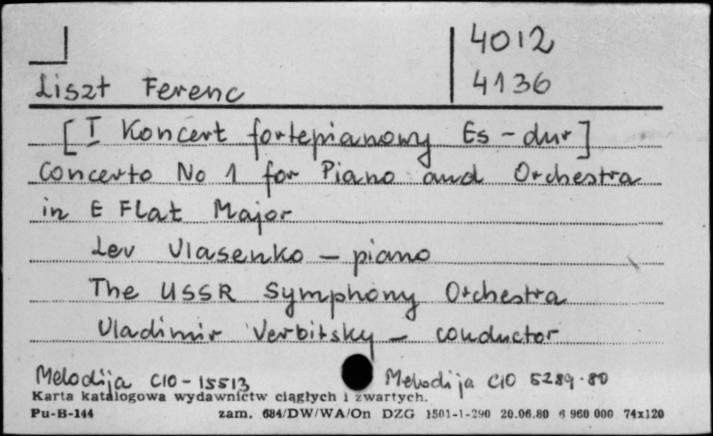 4012
Liszt Ferenc 4136
[I Koncert fortepianowy Es-dur]
Concerto No 1 for Piano and Orchestra
in E Flat Major
Lev Vlasenko - piano
The USSR Symphony Orchestra
Vladimir Verbitsky - conductor
Melodija C10-15513 Melodija C10 5289-80
Karta katalogowa wydawnictw ciągłych i zwartych.
Pu-B-144 zam. 684/DW/WA/On DZG 1501-1-290 20.06.80 6 960 000 74x120